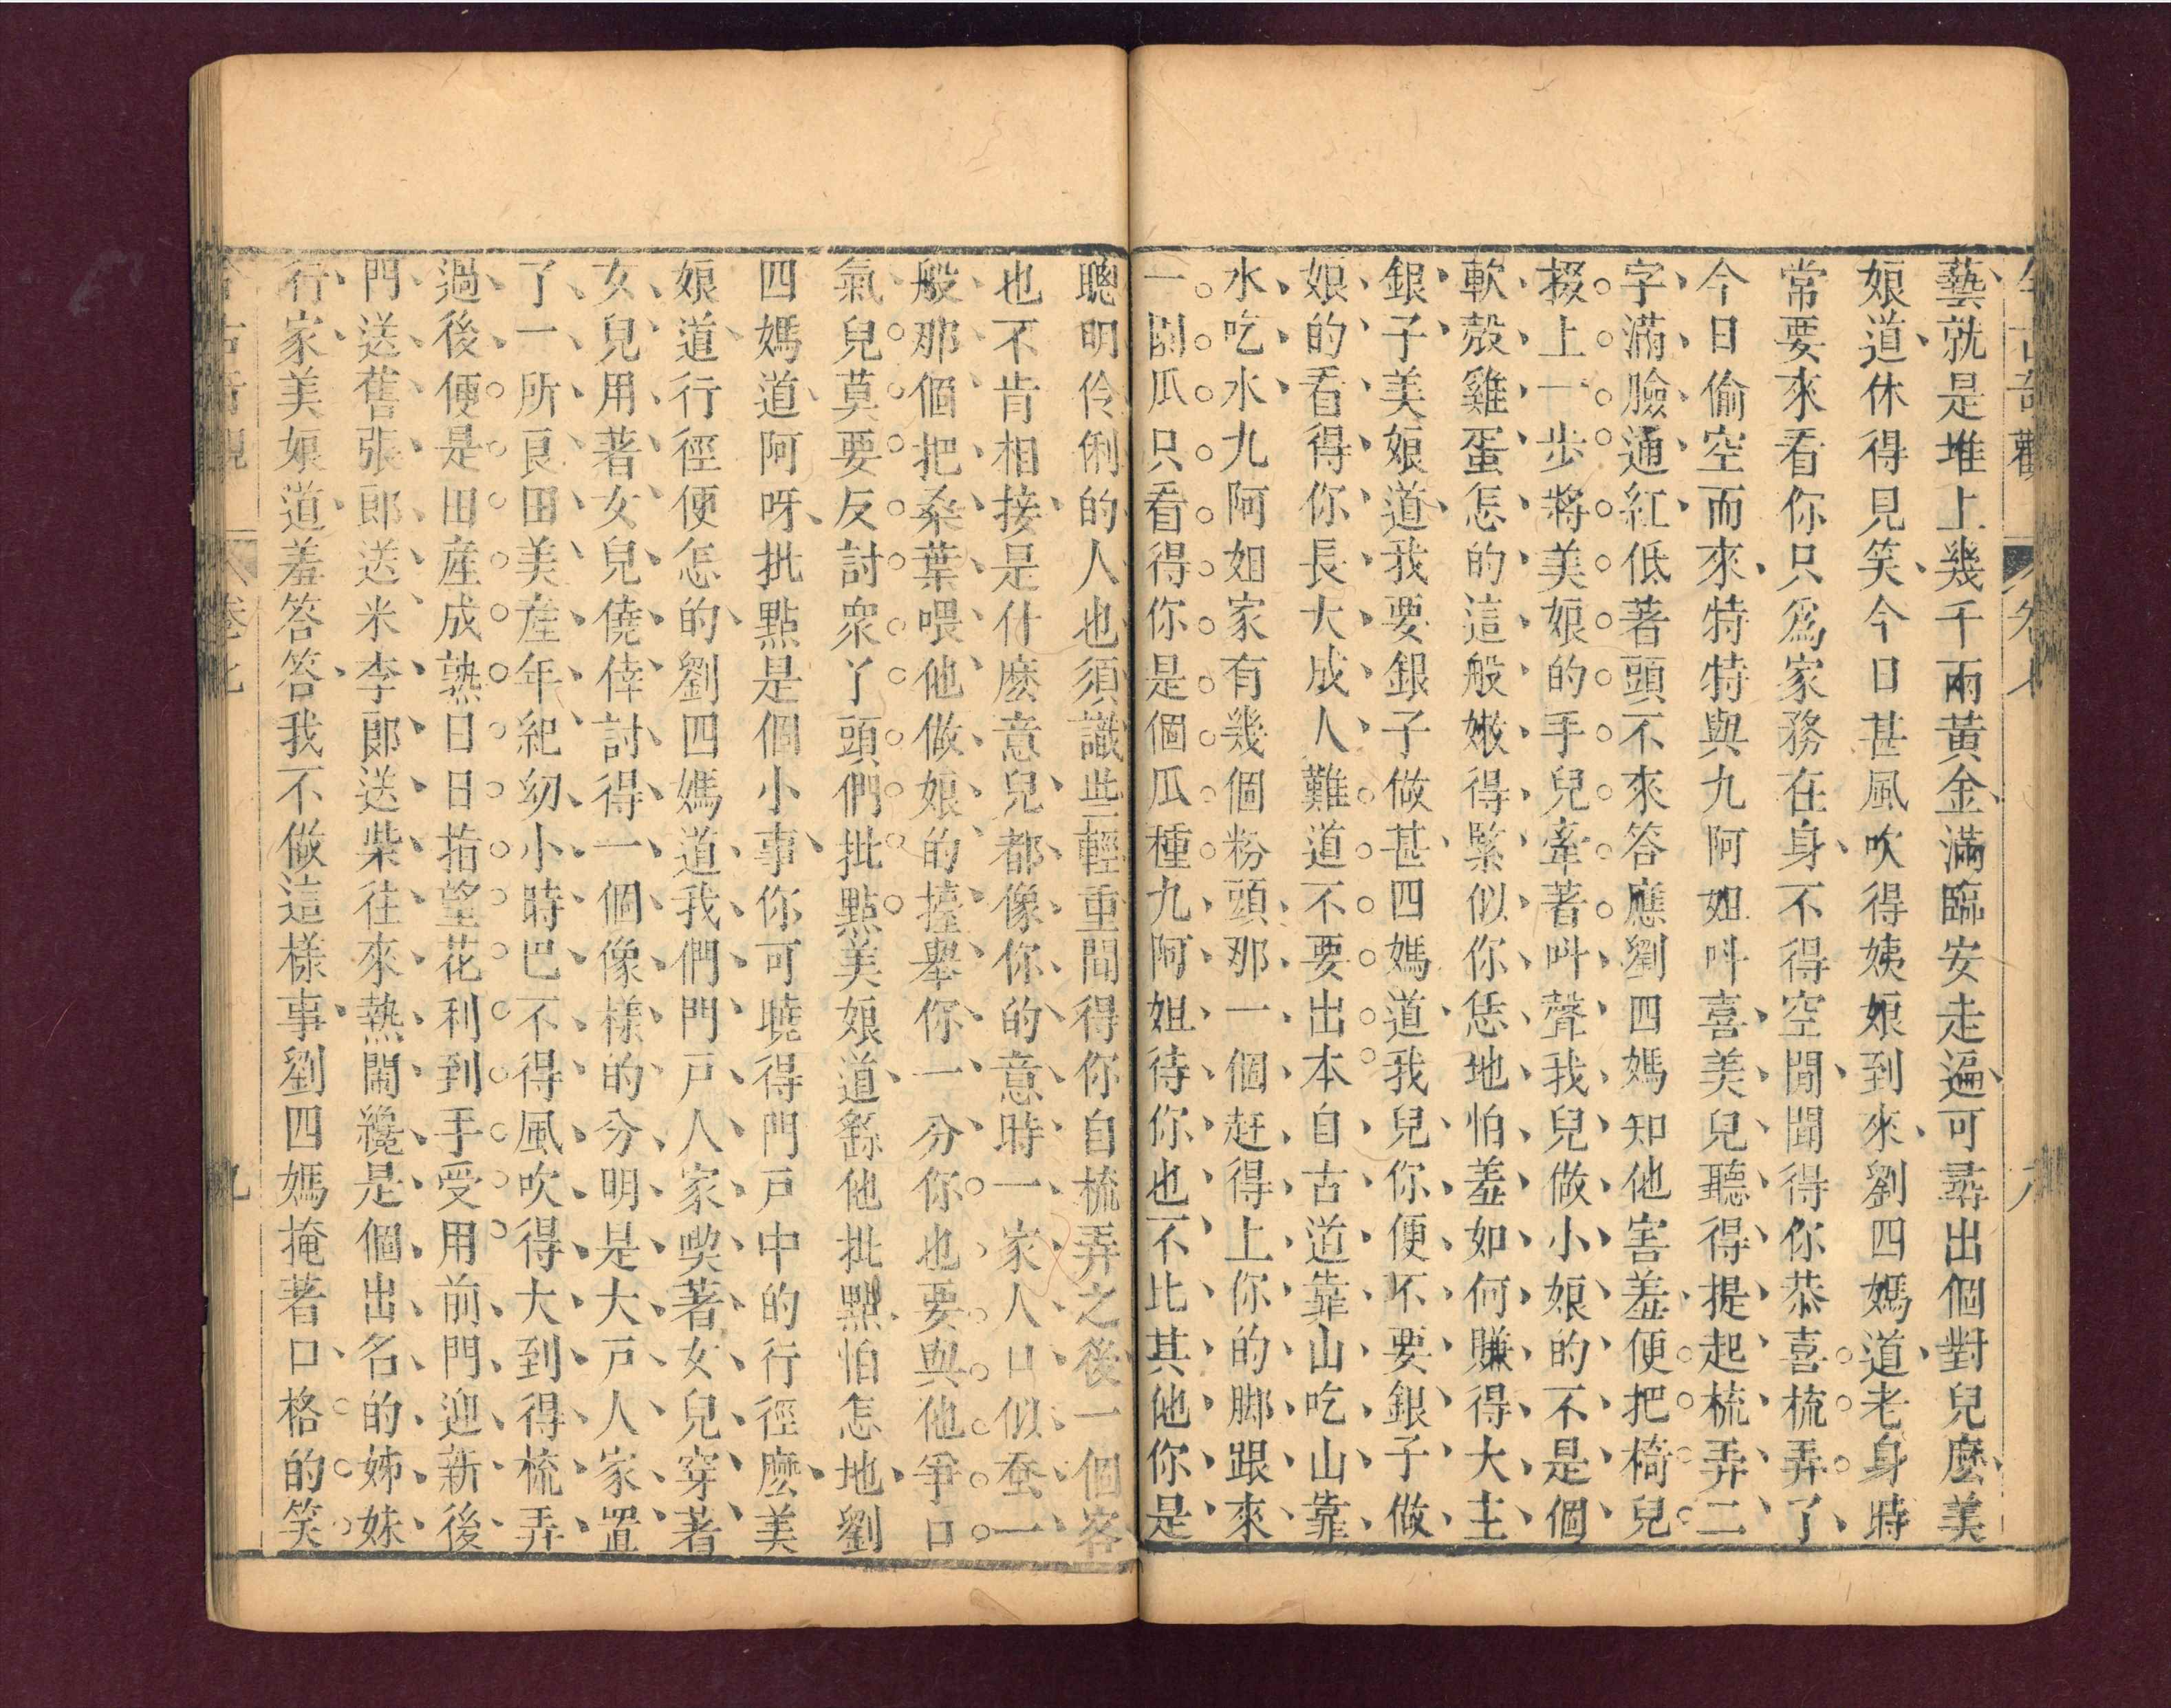 今古奇觀 卷七 八
藝就是堆上幾千兩黃金滿臨安走遍可尋出個對兒麽美
娘道休得見笑今日甚風吹得姨娘到來劉四媽道老身時
常要來看你只爲家務在身不得空閒聞得你恭喜梳弄了
今日偷空而來特特與九阿姐呌喜美兒聽得提起梳弄二
字滿臉通紅低著頭不來答應劉四媽知他害羞便把椅兒
掇上一步將美娘的手兒牽著呌聲我兒做小娘的不是個
軟殼雞蛋怎的這般嫩得緊似你恁地怕羞如何賺得大主
銀子美娘道我要銀子做甚四媽道我兒你便不要銀子做
娘的看得你長大成人難道不要出本自古道靠山吃山靠
水吃水九阿姐家有幾個粉頭那一個赶得上你的脚跟來
一園瓜只看得你是個瓜種九阿姐待你也不比其他你是
聰明伶俐的人也須識些輕重聞得你自梳弄之後一個客
也不肯相接是什麽意兒都像你的意時一家人口似蚕一
般那個把桑葉喂他做娘的擡舉你一分你也要與他爭口
氣兒莫要反討衆丫頭們批點美娘道繇他批點怕怎地劉
四媽道阿呀批點是個小事你可曉得門戸中的行徑麽美
娘道行徑便怎的劉四媽道我們門戸人家喫著女兒穿著
女兒用著女兒僥倖討得一個像樣的分明是大戸人家置
了一所良田美產年紀幼小時巴不得風吹得大到得梳弄
過後便是田產成熟日日指望花利到手受用前門迎新後
門送舊張郎送米李郎送柴往來熱鬧纔是個出名的姊妹
行家美娘道羞答答我不做這樣事劉四媽掩著口格的笑
今古奇觀 卷七 九